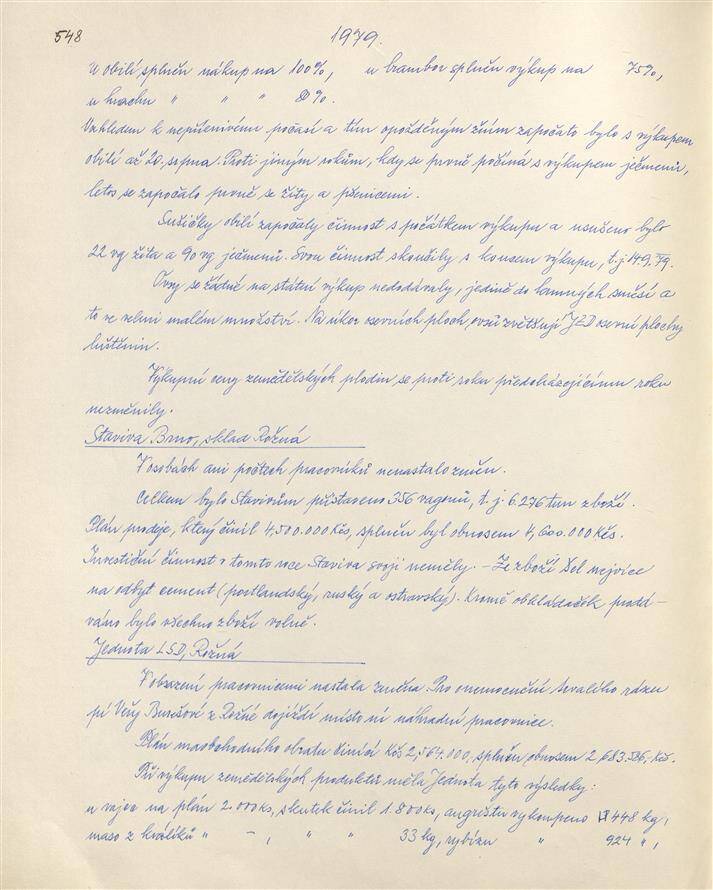 548
1979.
U obilí splněn nákup na 100%, u brambor splněn výkup na 75%,
u hrachu " " " 0%.
Vzhledem k nepříznivému počasí a tím opožděným žním započato bylo s výkupem
obilí až 20. srpna. Proti jiným rokům, kdy se prvně počíná s výkupem ječmenů,
letos se započalo prvně se žity a pšenicemi.
Sušičky obilí započaly činnost s počátkem výkupu a usušeno bylo
22 vg žita a 90 vg ječmenů. Svou činnost skončily s koncem výkupu, t.j. 14.9.79.
Ovsy se žádné na státní výkup nedodávaly, jedině do krmných směsí a
to ve velmi malém množství. Na úkor osevních ploch ovsů zvětšují JZD osevní plochy
luštěnin.
Výkupní ceny zemědělských plodin se proti roku předcházejícímu roku
nezměnily.
Staviva Brno, sklad Rožná
V osobách ani počtech pracovníků nenastalo změn.
Celkem bylo Stavivům přistaveno 356 vagonů, t.j. 6.276 tun zboží.
Plán prodeje, který činil 4,500.000 Kčs, splněn byl obnosem 4,600.000 Kčs.
Investiční činnost v tomto roce Staviva svoji neměly. - Ze zboží šel nejvíce
na odbyt cement (portlandský, ruský a ostravský). Kromě obkládaček prodá-
váno bylo všechno zboží volně.
Jednota LSD, Rožná
V obsazení pracovnicemi nastala změna. Pro onemocnění trvalého rázu
pí Věry Burešové z Rožné dojíždí místo ní náhradní pracovnice.
Plán maobchodního obratu činící Kčs 2,564.000, splněn obnosem 2 683.506,- Kčs.
Při výkupu zemědělských produktů měla Jednota tyto výsledky:
u vajec na plán 2.000 ks, skutek činil 1.800 ks, angreštu vykoupeno 448 kg,
maso z králíků " - , " " 33 kg, rybízu " 924 " ,